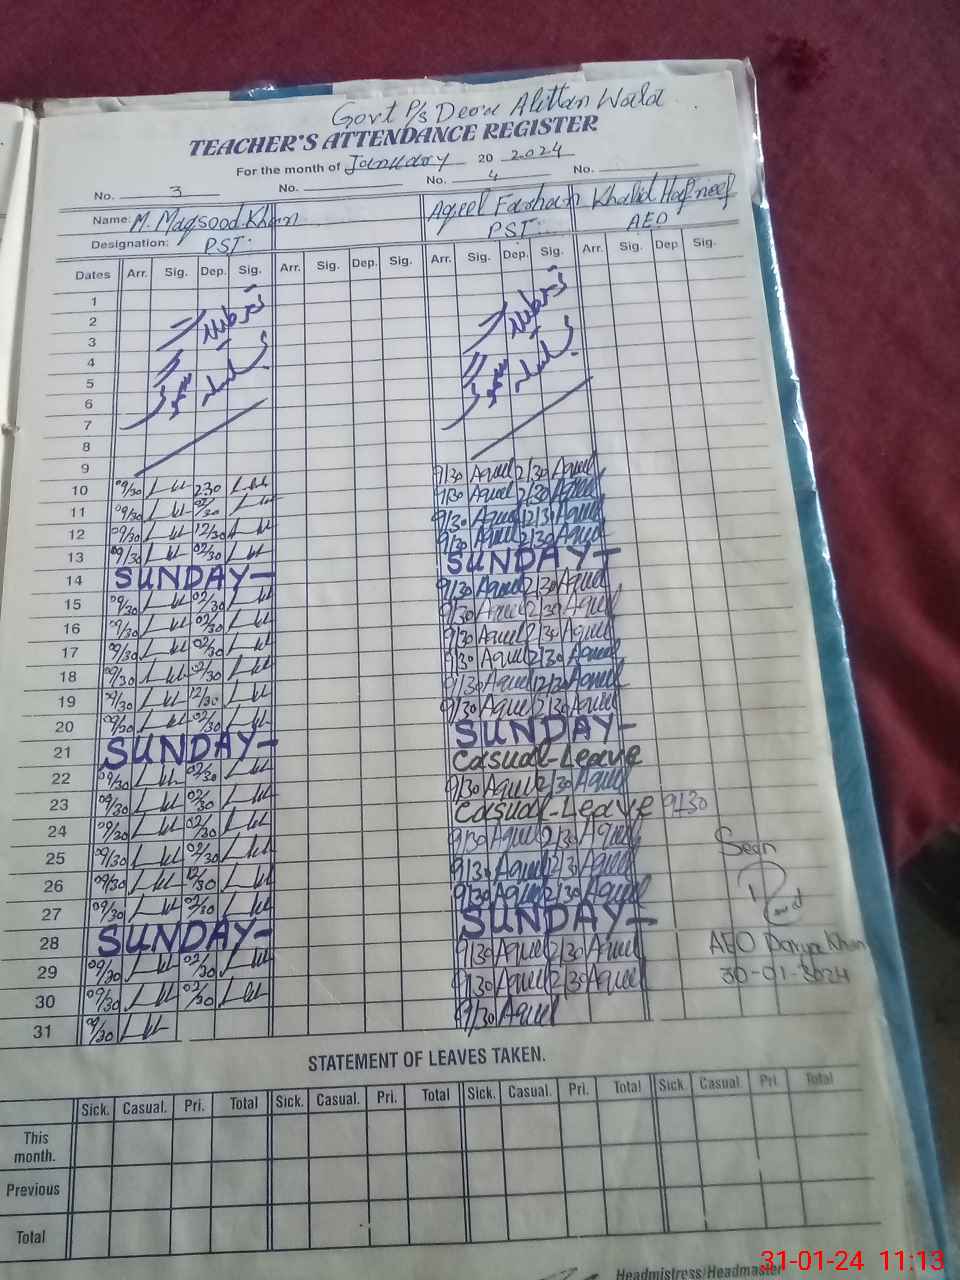 Govt P/s Deora Alittan Wala
TEACHER'S ATTENDANCE REGISTER
For the month of January 20 2024
No. 3 No. No. 4 No.
Name: M. Maqsood Khan Aqeel Farhan Khalid Haneef
Designation: PST PST AEO
Dates Arr. Sig. Dep. Sig. Arr. Sig. Dep. Sig. Arr. Sig. Dep. Sig. Arr. Sig. Dep Sig.
1
2
3
4
5
6
7
8
9 9/30 Aqeel 2/30 Aqeel
10 09/30 230 9/30 Aqeel 2/30 Aqeel
11 09/30 02/30 9/30 Aqeel 12/30 Aqeel
12 09/30 12/30 9/30 Aqeel 2/30 Aqeel
13 09/30 02/30 SUNDAY-
14 SUNDAY- 9/30 Aqeel 2/30 Aqeel
15 09/30 02/30 9/30 Aqeel 2/30 Aqeel
16 09/30 02/30 9/30 Aqeel 2/30 Aqeel
17 09/30 02/30 9/30 Aqeel 2/30 Aqeel
18 09/30 02/30 9/30 Aqeel 12/30 Aqeel
19 09/30 12/30 9/30 Aqeel 2/30 Aqeel
20 09/30 02/30 SUNDAY-
21 SUNDAY- Casual-Leave
22 09/30 02/30 9/30 Aqeel 2/30 Aqeel
23 09/30 02/30 Casual-Leave 9/30
24 09/30 02/30 9/30 Aqeel 2/30 Aqeel
25 09/30 02/30 9/30 Aqeel 2/30 Aqeel
26 09/30 12/30 9/30 Aqeel 2/30 Aqeel
27 09/30 02/30 SUNDAY-
28 SUNDAY- 9/30 Aqeel 2/30 Aqeel
29 09/30 02/30 9/30 Aqeel 2/30 Aqeel
30 09/30 02/30 9/30 Aqeel
31 09/30
Seen
AEO Darya Khan
30-01-2024
STATEMENT OF LEAVES TAKEN.
Sick. Casual. Pri. Total Sick. Casual. Pri. Total Sick. Casual. Pri. Total Sick. Casual. Pri. Total
This month.
Previous
Total
Headmistress/Headmaster
31-01-24 11:13